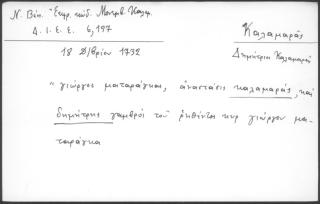 Ν. Βέη. Ἔκφρ. κώδ. Μοντρβ. Καλαμ.
Δ. Ι. Ε. Ε. 6, 197
Καλαμαρᾶς
Δημήτριος Καλαμαρᾶς
18 Δ/βρίου 1732
"γιώργος ματαράγκας, ἀναστάσις καλαμαράς, καὶ
δημήτρης γαμβρός τοῦ ῥηθέντος κυρ γιώργου μα-
ταράγκα